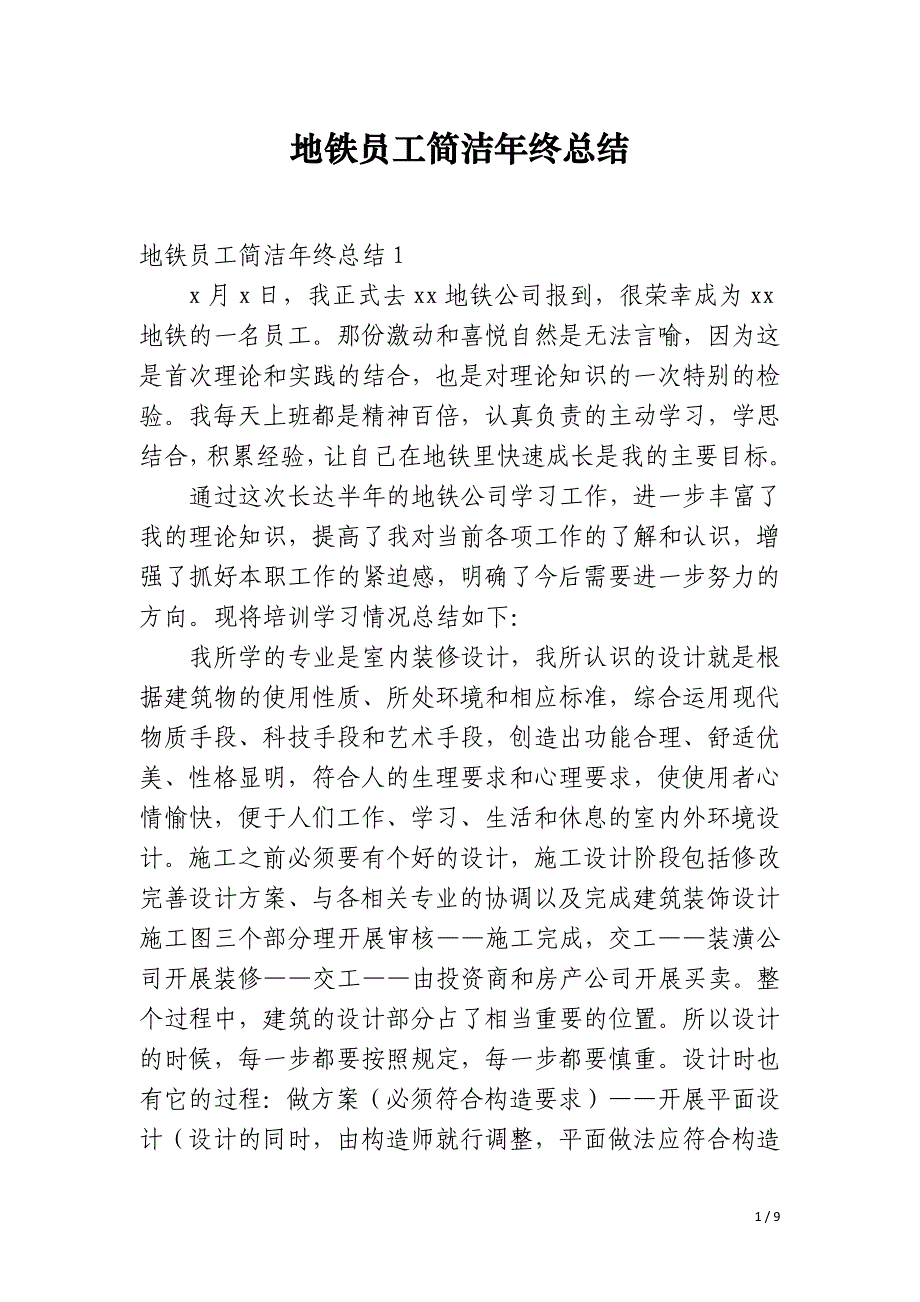 地铁员工简洁年终总结
地铁员工简洁年终总结1
x月x日，我正式去xx地铁公司报到，很荣幸成为xx
地铁的一名员工。那份激动和喜悦自然是无法言喻，因为这
是首次理论和实践的结合，也是对理论知识的一次特别的检
验。我每天上班都是精神百倍，认真负责的主动学习，学思
结合，积累经验，让自己在地铁里快速成长是我的主要目标。
通过这次长达半年的地铁公司学习工作，进一步丰富了
我的理论知识，提高了我对当前各项工作的了解和认识，增
强了抓好本职工作的紧迫感，明确了今后需要进一步努力的
方向。现将培训学习情况总结如下：
我所学的专业是室内装修设计，我所认识的设计就是根
据建筑物的使用性质、所处环境和相应标准，综合运用现代
物质手段、科技手段和艺术手段，创造出功能合理、舒适优
美、性格显明，符合人的生理要求和心理要求，使使用者心
情愉快，便于人们工作、学习、生活和休息的室内外环境设
计。施工之前必须要有个好的设计，施工设计阶段包括修改
完善设计方案、与各相关专业的协调以及完成建筑装饰设计
施工图三个部分理开展审核——施工完成，交工——装潢公
司开展装修——交工——由投资商和房产公司开展买卖。整
个过程中，建筑的设计部分占了相当重要的位置。所以设计
的时候，每一步都要按照规定，每一步都要慎重。设计时也
有它的过程：做方案（必须符合构造要求）——开展平面设
计（设计的同时，由构造师就行调整，平面做法应符合构造
1 / 9